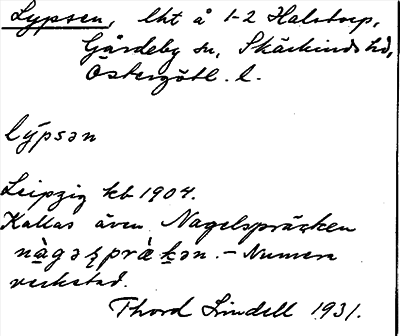 Lypsen, lht å 1-2 Halstorp,
Gårdeby sn, Skärkinds hd,
Östergötl. l.
lýpsən
Leipzig kb 1904.
Kallas även Nagelspräcken
nàgəʂpræ̀kən. – Numera
verkstad.
Thord Lindell 1931.